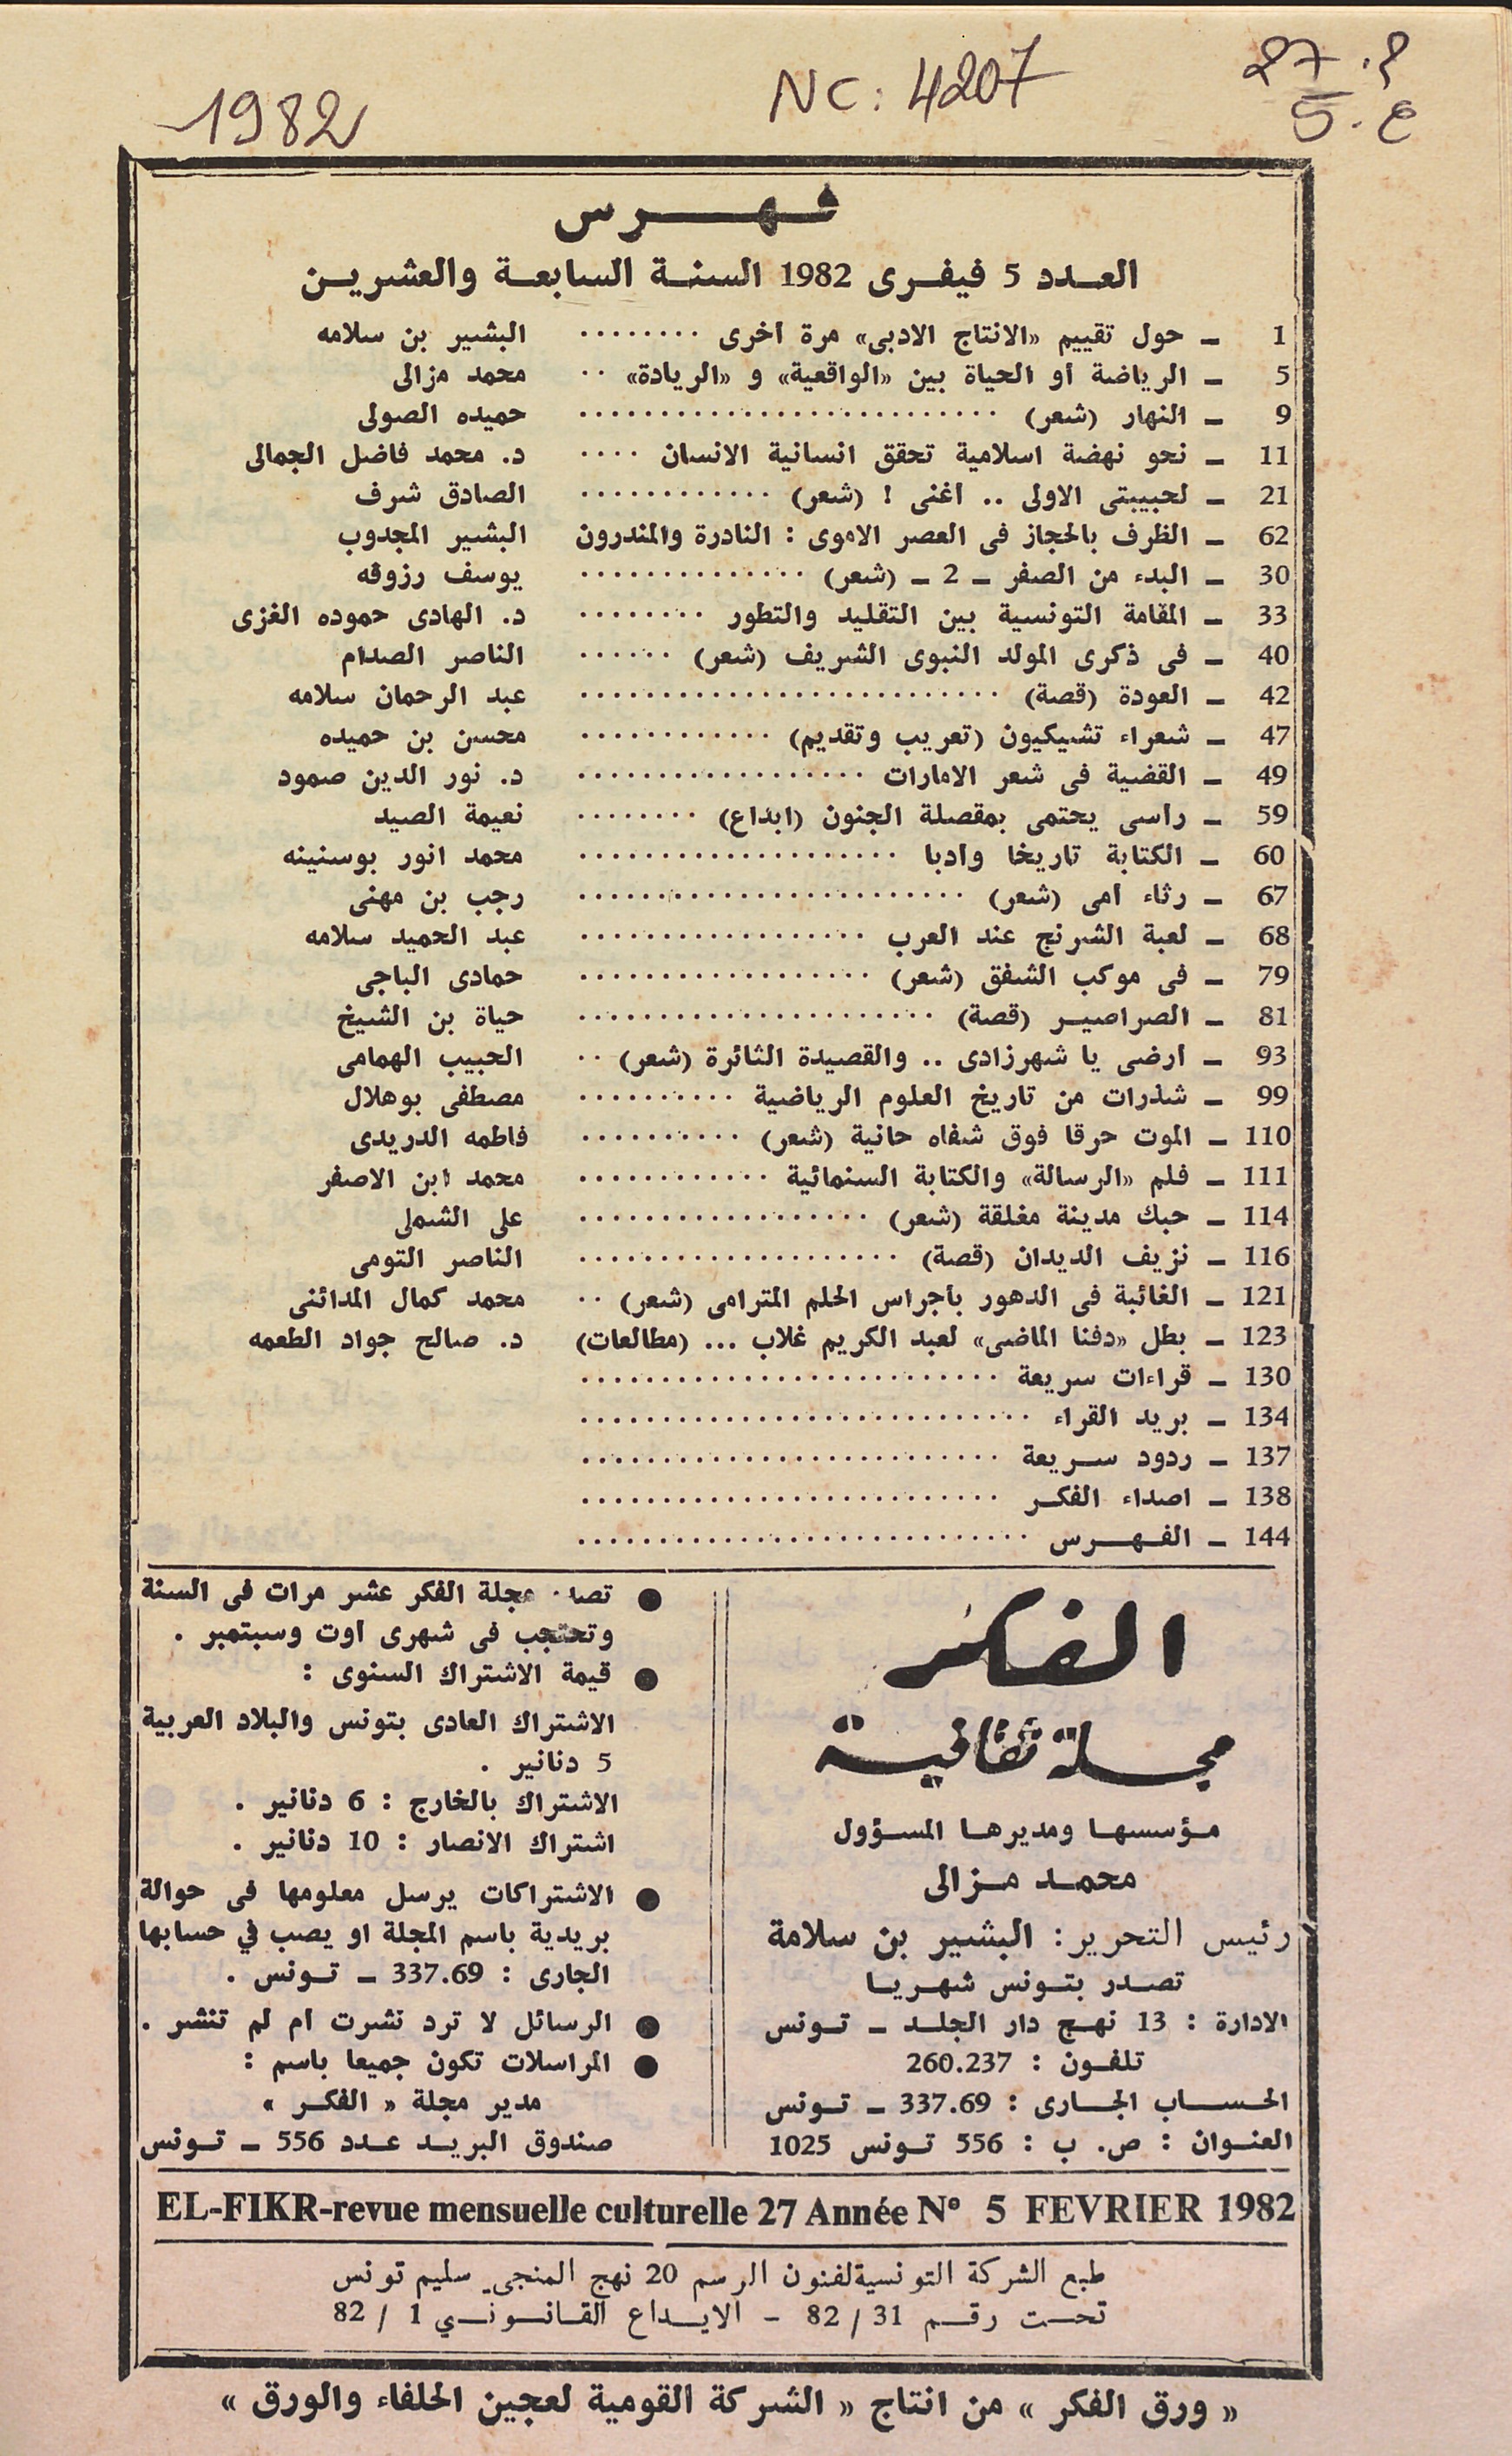 1982
NC: 4207
27 م.
5 ع.
فهرس
العدد 5 فيفرى 1982 السنة السابعة والعشرين
1 – حول تقييم «الانتاج الادبى» مرة أخرى ........ البشير بن سلامه
5 – الرياضة أو الحياة بين «الواقعية» و «الريادة» .. محمد مزالى
9 – النهار (شعر) .......................... حميده الصولى
11 – نحو نهضة اسلامية تحقق انسانية الانسان .... د. محمد فاضل الجمالى
21 – لحبيبتى الاولى .. أغنى ! (شعر) ............ الصادق شرف
62 – الظرف بالحجاز فى العصر الاموى : النادرة والمندرون البشير المجدوب
30 – البدء من الصفر – 2 – (شعر) .............. يوسف رزوقه
33 – المقامة التونسية بين التقليد والتطور ........ د. الهادى حموده الغزى
40 – فى ذكرى المولد النبوى الشريف (شعر) ...... الناصر الصدام
42 – العودة (قصة) .......................... عبد الرحمان سلامه
47 – شعراء تشيكيون (تعريب وتقديم) ............ محسن بن حميده
49 – القضية فى شعر الامارات .................. د. نور الدين صمود
59 – رأسى يحتمى بمقصلة الجنون (ابداع) ........ نعيمة الصيد
60 – الكتابة تاريخا وأدبا .................... محمد أنور بوسنينه
67 – رثاء أمى (شعر) ........................ رجب بن مهنى
68 – لعبة الشرنج عند العرب .................. عبد الحميد سلامه
79 – فى موكب الشفق (شعر) .................. حمادى الباجى
81 – الصراصير (قصة) ...................... حياة بن الشيخ
93 – أرضى يا شهرزادى .. والقصيدة الثائرة (شعر) .. الحبيب الهمامى
99 – شذرات من تاريخ العلوم الرياضية .......... مصطفى بوهلال
110 – الموت حرقا فوق شفاه حانية (شعر) .......... فاطمه الدريدى
111 – فلم «الرسالة» والكتابة السنمائية ............ محمد ابن الاصفر
114 – حبك مدينة مغلقة (شعر) .................. على الشملى
116 – نزيف الديدان (قصة) .................... الناصر التومى
121 – الغائبة فى الدهور بأجراس الحلم المترامى (شعر) .. محمد كمال المدائنى
123 – بطل «دفنا الماضى» لعبد الكريم غلاب ... (مطالعات) د. صالح جواد الطعمه
130 – قراءات سريعة ..........................
134 – بريد القراء ............................
137 – ردود سريعة ..........................
138 – أصداء الفكر ..........................
144 – الفهرس ............................
الفكر
مجلة ثقافية
مؤسسها ومديرها المسؤول
محمد مزالى
رئيس التحرير: البشير بن سلامة
تصدر بتونس شهريا
الادارة : 13 نهج دار الجلد – تونس
تلفون : 260.237
الحساب الجارى : 337.69 – تونس
العنوان : ص. ب : 556 تونس 1025
● مجلة الفكر عشر مرات فى السنة
وتحتجب فى شهرى أوت وسبتمبر .
● قيمة الاشتراك السنوى :
الاشتراك العادى بتونس والبلاد العربية
5 دنانير .
الاشتراك بالخارج : 6 دنانير .
اشتراك الانصار : 10 دنانير .
● الاشتراكات يرسل معلومها فى حوالة
بريدية باسم المجلة أو يصب في حسابها
الجارى : 337.69 – تونس .
● الرسائل لا ترد نشرت أم لم تنشر .
● المراسلات تكون جميعا باسم :
مدير مجلة « الفكر »
صندوق البريد عدد 556 – تونس
EL-FIKR-revue mensuelle culturelle 27 Année N° 5 FEVRIER 1982
طبع الشركة التونسية لفنون الرسم 20 نهج المنجى سليم تونس
تحت رقم 31 / 82 - الايداع القانوني 1 / 82
« ورق الفكر » من انتاج « الشركة القومية لعجين الحلفاء والورق »